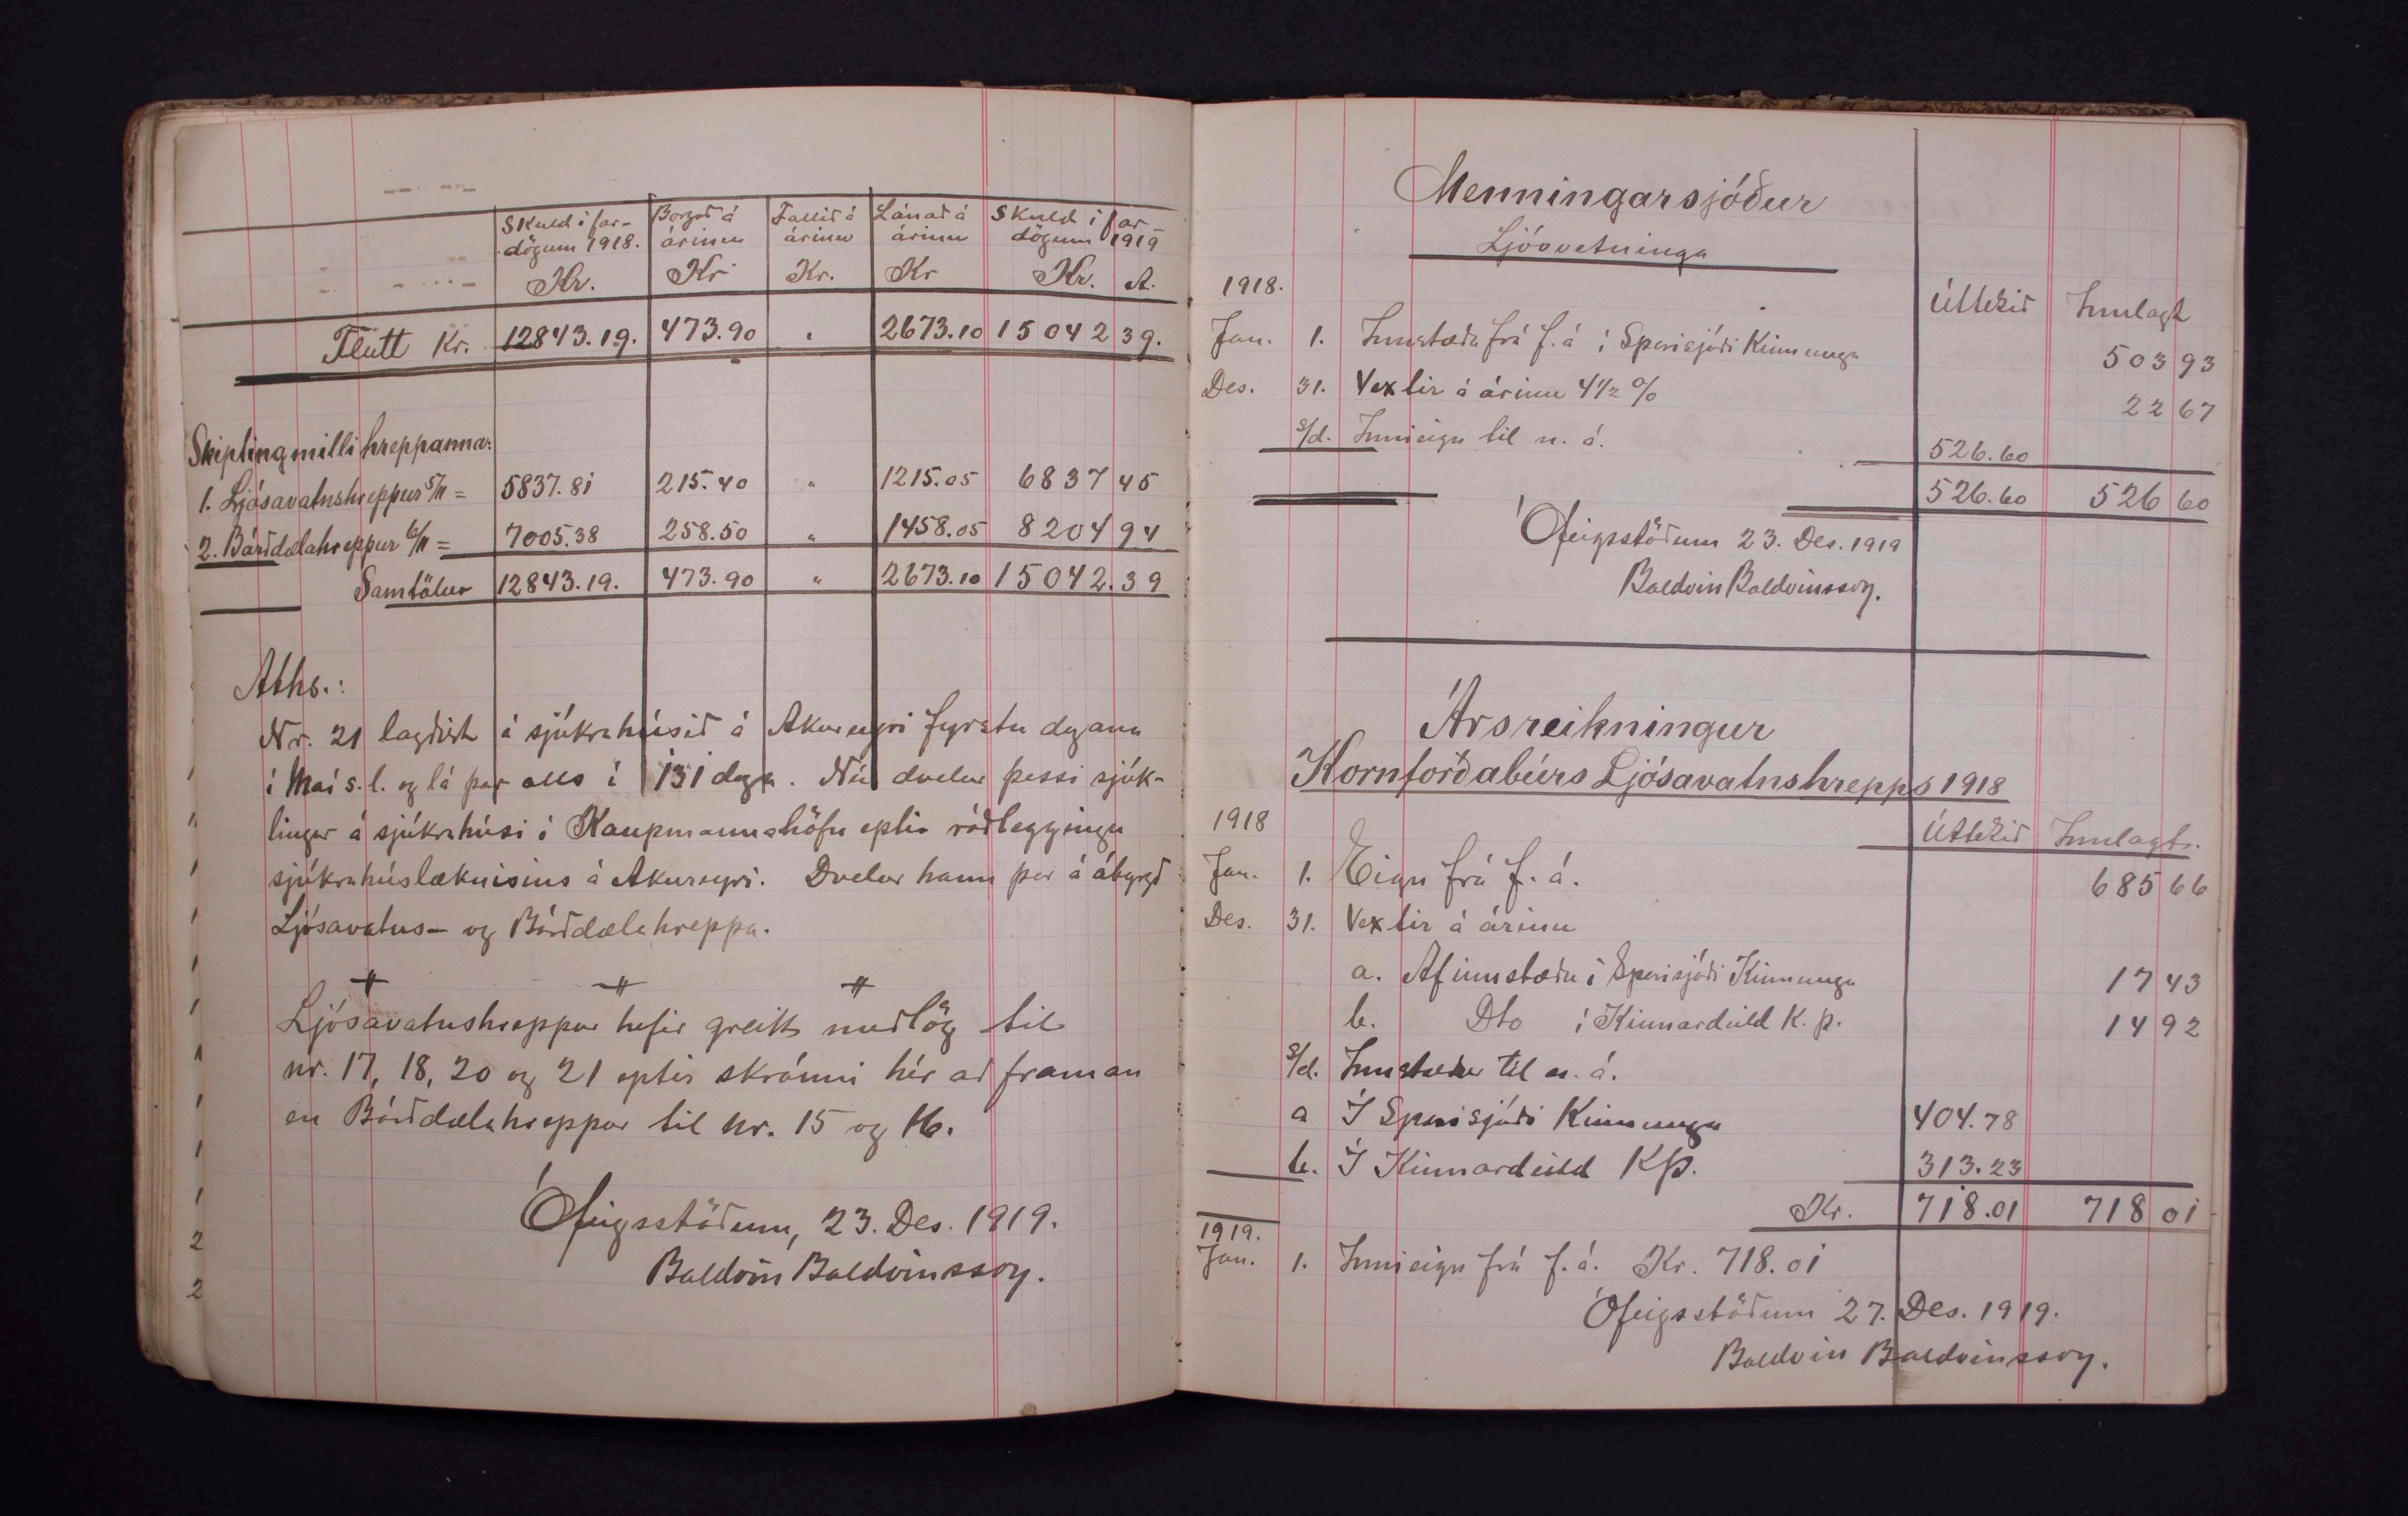 Skuld í far- Borgað á Fallið á Lánað á Skuld í far-
dögum 1918. árinu árinu árinu dögum 1919
Kr. Kr Kr. Kr Kr. A.
Flutt Kr. 12843.19. 473.90 " 2673.10 15042 39.
Skipting milli hreppanna:
1. Ljósavatnshreppur 5/11 = 5837.81 215.40 " 1215.05 6837 45
2. Bárðdælahreppur 6/11 = 7005.38 258.50 " 1458.05 8204 94
Samtölur 12843.19. 473.90 " 2673.10 15042.39
Aths.:
Nr. 21 lagðist á sjúkrahúsið á Akureyri fyrstu dagana
í Maí s.l. og lá þar alls í 131 daga. Nú dvelur þessi sjúk-
lingur á sjúkrahúsi í Kaupmannahöfn eptir ráðleggingu
sjúkrahúslæknisins á Akureyri. Dvelur hann þar á ábyrgð
Ljósavatns- og Bárðdælahreppa.
Ljósavatnshreppur hefir greitt meðlög til
nr. 17, 18, 20 og 21 eptir skránni hér að framan
en Bárðdælahreppur til nr. 15 og 16.
Ófeigsstöðum, 23. Des. 1919.
Baldvin Baldvinsson.
2
2
Menningarsjóður
Ljósvetninga
1918.
Úttekið Innlagt
Jan. 1. Innstæða frá f. á í Sparisjóði Kinnunga 503 93
Des. 31. Vextir á árinu 4 1/2 % 22 67
s/d. Innieign til n. á. 526.60
526.60 526 60
Ófeigsstöðum 23. Des. 1919
Baldvin Baldvinsson.
Ársreikningur
Kornforðabúrs Ljósavatnshrepps 1918
1918 Úttekið Innlagt.
Jan. 1. Eign frá f. á. 685 66
Des. 31. Vextir á árinu
a. Af innstæðu í Sparisjóði Kinnunga 17 43
b. Dto í Kinnardeild K. Þ. 14 92
s/d. Innstæður til n. á.
a Í Sparisjóði Kinnunga 404.78
b. Í Kinnardeild KÞ. 313.23
Kr. 718.01 718 01
1919.
Jan. 1. Innieign frá f. á. Kr. 718.01
Ófeigsstöðum 27. Des. 1919.
Baldvin Baldvinsson.